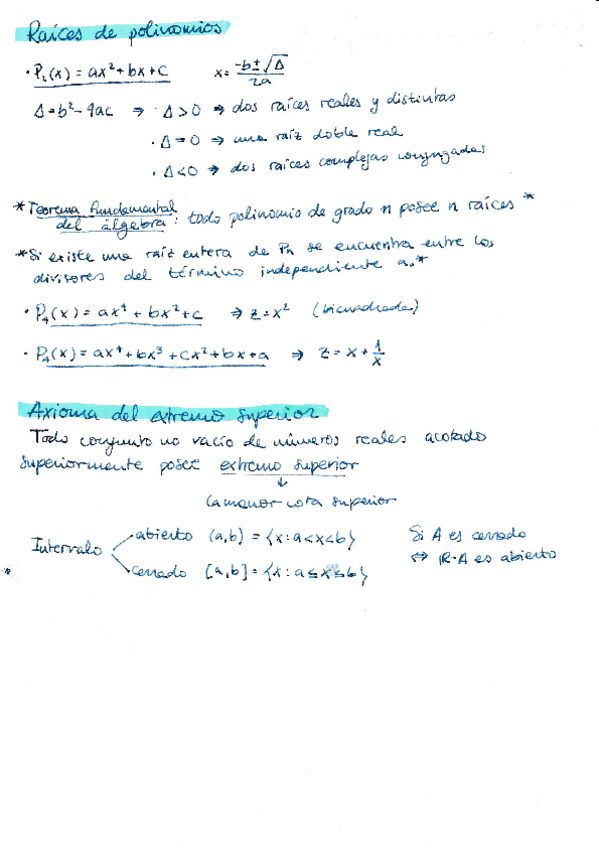 Raíces de polinomios
· P₂(x) = ax²+bx+c x = (-b±√Δ)/2a
Δ = b²-4ac ⇒ · Δ>0 ⇒ dos raíces reales y distintas
· Δ=0 ⇒ una raíz doble real
· Δ<0 ⇒ dos raíces complejas conjugadas
*Teorema fundamental
del álgebra: todo polinomio de grado n posee n raíces*
*Si existe una raíz entera de Pn se encuentra entre los
divisores del término independiente a₀*
· P₄(x) = ax⁴ + bx² + c ⇒ z = x² (bicuadrada)
· P₄(x) = ax⁴+bx³+cx²+bx+a ⇒ z = x + 1/x
Axioma del extremo superior
Todo conjunto no vacío de números reales acotado
superiormente posee extremo superior
↓
La menor cota superior
Intervalo
abierto (a,b) = {x: a<x<b}
cerrado [a,b] = {x: a≤x≤b}
Si A es cerrado
⇔ ℝ-A es abierto